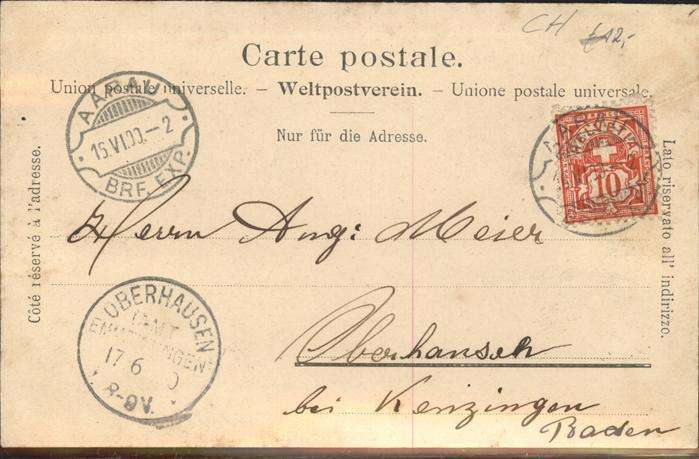 CH £12,-
Carte postale.
Union postale universelle. – Weltpostverein. – Unione postale universale.
Nur für die Adresse.
Côté réservé à l'adresse.
Lato riservato all' indirizzo.
AARAU
15.VI.00.–2
BRF. EXP.
HELVETIA
10
Herrn Aug: Meier
Oberhausen
bei Kenzingen
Baden
OBERHAUSEN
(AMT
EMMENDINGEN)
17 6 0
8-9V.